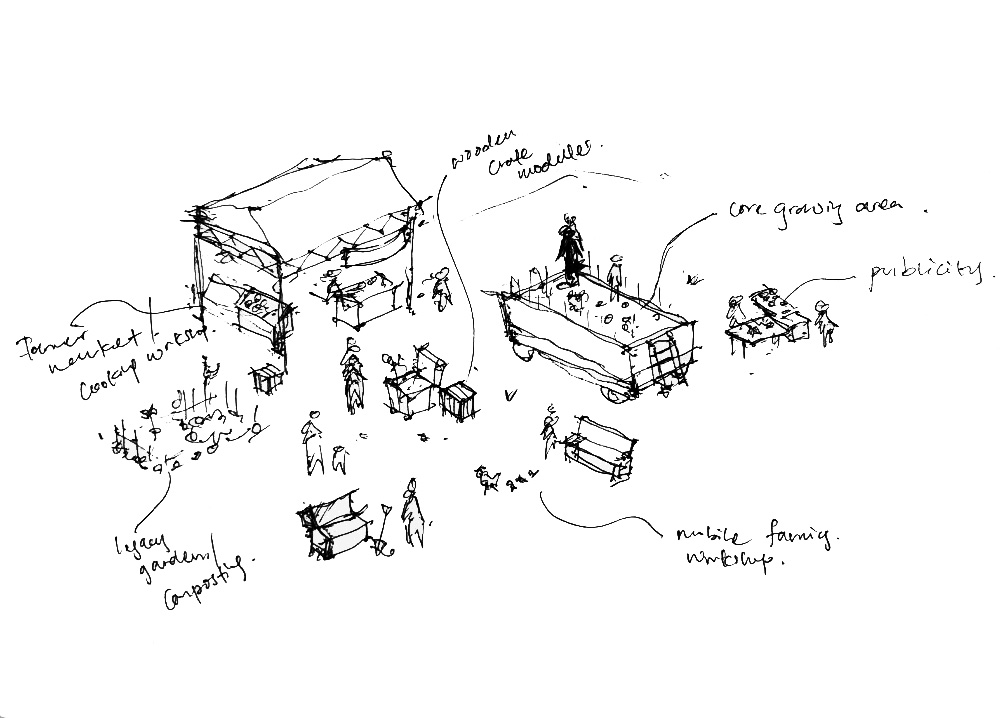 wooden
crate
modules.
core growing area.
publicity.
Farmer
market /
cooking workshop.
legacy
garden /
composting.
mobile farming.
workshop.